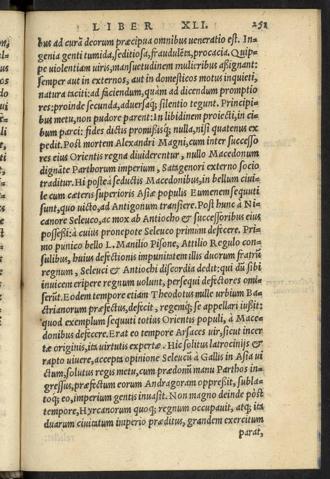 LIBER XLI. 251
bus ad curã deorum præcipua omnibus veneratio est. In=
genia genti tumida, seditiosa, fraudulēta, procacia. Quip=
pe violentiam viris, mansuetudinem mulieribus assignant:
semper aut in externos, aut in domesticos motus inquieti,
natura taciti: ad faciendum, quàm ad dicendum promptio
res: proinde secunda, aduersaq; silentio tegunt. Principi=
bus metu, non pudore parent: In libidinem proiecti, in ci=
bum parci: fides dictis promissisq; nulla, nisi quatenus ex
pedit. Post mortem Alexandri Magni, cum inter successo
res eius Orientis regna diuiderentur, nullo Macedonum
dignãte Parthorum imperium, Satagenori externo socio
traditur. Hi posteà seductis Macedonibus, in bellum ciui=
le cum cæteris superioris Asiæ populis Eumenem sequuti
sunt, quo victo, ad Antigonum transiere. Post hunc à Ni=
canore Seleuco, ac mox ab Antiocho & successoribus eius
possessi: à cuius pronepote Seleuco primùm defecere. Pri=
mo punico bello L. Manilio Pisone, Attilio Regulo con=
sulibus, huius defectionis impunitatem illis duorum fratrũ
regnum, Seleuci & Antiochi discordia dedit: qui dũ sibi
inuicem eripere regnum volunt, persequi defectores omi=
serũt. Eodem tempore etiam Theodotus mille vrbium Ba=
ctrianorum præfectus, defecit, regemq; se appellari iußit:
quod exemplum sequuti totius Orientis populi, à Mace=
donibus defecere. Erat eo tempore Arsaces vir, sicut incer
tæ originis, ita virtutis expertæ. Hic solitus latrocinijs &
rapto viuere, accepta opinione Seleucũ à Gallis in Asia ui
ctum, solutus regis metu, cum prædonũ manu Parthos in=
gressus, præfectum eorum Andragoram oppreßit, subla=
toq; eo, imperium gentis inuasit. Non magno deinde pòst
tempore, Hyrcanorum quoq; regnum occupauit, atq; ita
duarum ciuitatum imperio præditus, grandem exercitum
parat,